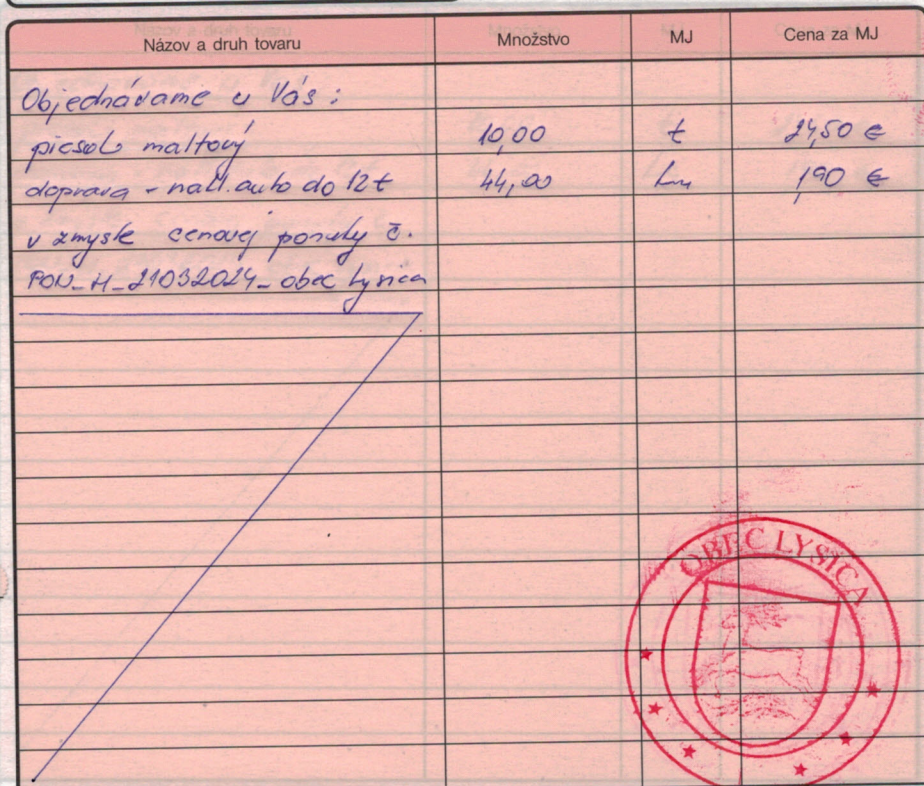 Názov a druh tovaru Množstvo MJ Cena za MJ
Objednávame u Vás :
piesok maltový 10,00 t 24,50 €
doprava - nákl. auto do 12t 44,00 km 1,90 €
v zmysle cenovej ponuky č.
PON_H_21032024_obec Lysica
OBEC LYSICA